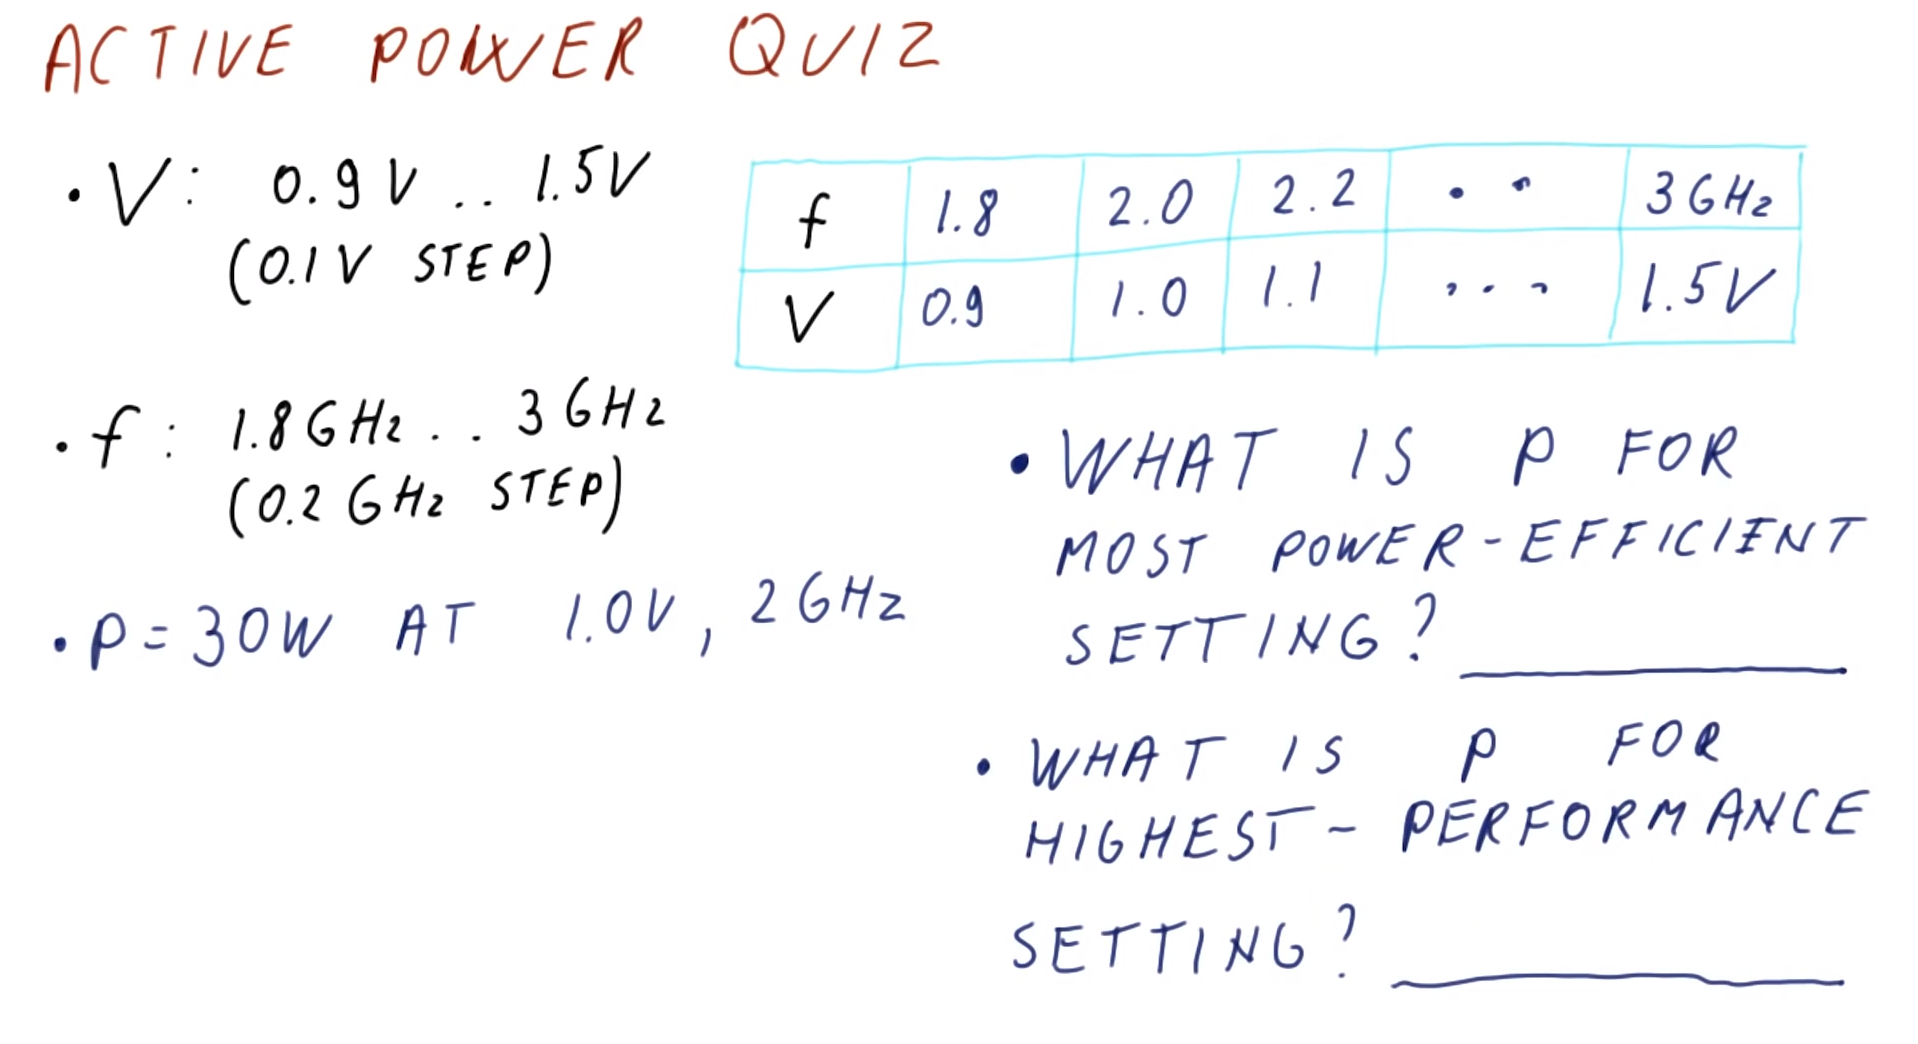 ACTIVE POWER QUIZ
• V: 0.9V .. 1.5V
(0.1V STEP)
• f: 1.8GHz .. 3GHz
(0.2GHz STEP)
• P=30W AT 1.0V, 2GHz
f 1.8 2.0 2.2 .. 3GHz
V 0.9 1.0 1.1 ... 1.5V
• WHAT IS P FOR
MOST POWER-EFFICIENT
SETTING? ____
• WHAT IS P FOR
HIGHEST-PERFORMANCE
SETTING? ____